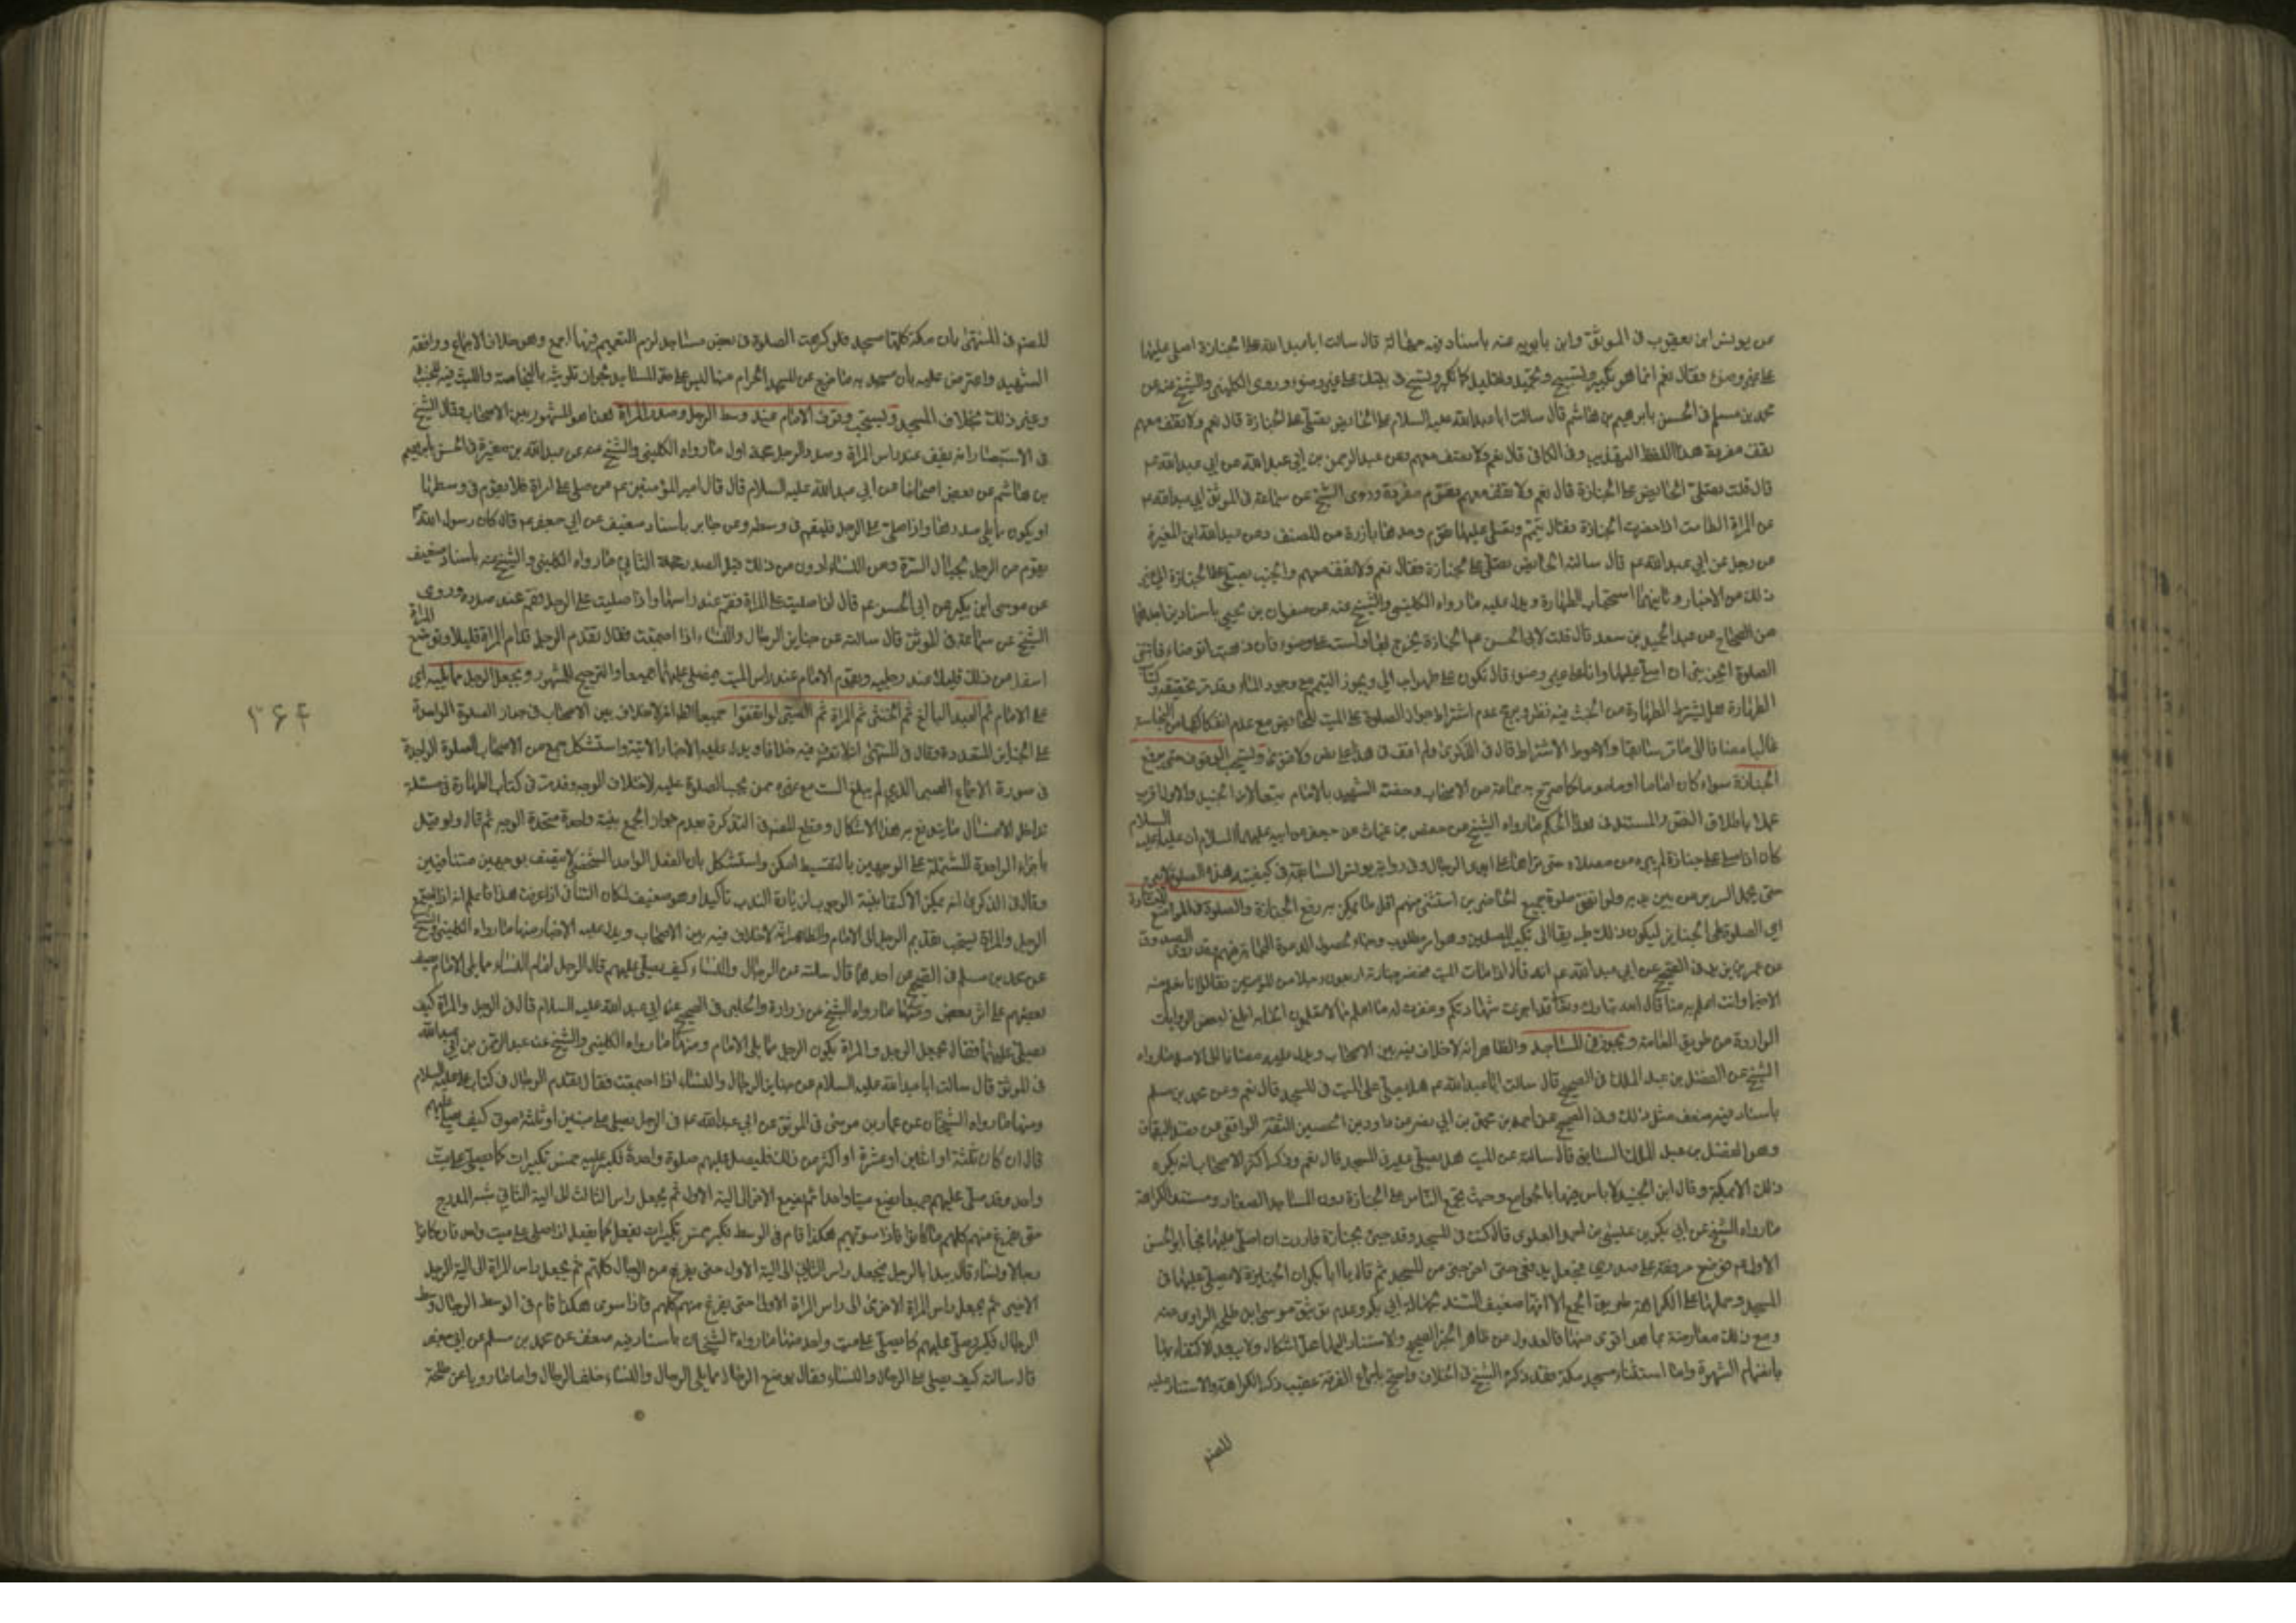 عن يونس ابن يعقوب في الموثق وابن بابويه عنه باسناد فيه جهالة قال سالت ابا عبد الله عن الجنازة اصلي عليها
على غير وضوء فقال نعم انما هو تكبير وتسبيح وتحميد وتهليل كما تكبر وتسبح في بيتك على غير وضوء وروى الكليني والشيخ عنه عن
محمد بن مسلم في الحسن بابرهيم بن هاشم قال سالت ابا عبد الله عليه السلام عن الحائض يصلي على الجنازة قال نعم ولا تقف معهم
تقف مفردة هذا اللفظ التهذيب وفي الكافي قال نعم ولا تقف معهم وعن عبد الرحمن بن ابي عبد الله عن ابي عبد الله ع
قال قلت تصلي الحائض على الجنازة قال نعم ولا تقف معهم تقوم مفردة وروى الشيخ عن سماعة في الموثق ابي عبد الله ع
عن المراة الطامث اذا حضرت الجنازة فقال تيمم وتصلي عليها تقوم وحدها بارزة من الصف وعن عبد الله ابن المغيرة
عن رجل عن ابي عبد الله ع قال سالته الحائض تصلي على الجنازة فقال نعم ولا تقف معهم والجنب يصلي على الجنازة الى غير
ذلك من الاخبار وثانيهما استحباب الطهارة ويدل عليه ما رواه الكليني والشيخ عنه عن صفوان بن يحيى باسنادين احدهما
من الصحاح عن عبد الحميد بن سعد قال قلت لابي الحسن ع الجنازة يخرج بها ولست على وضوء فان ذهبت اتوضاء فاتتني
الصلوة ايجزيني ان اصلي عليها وانا على غير وضوء قال تكون على طهر احب الي ويجوز التيمم مع وجود الماء وقد مر تحقيقه في كتاب
الطهارة هل يشترط الطهارة من الخبث فيه نظر ويرجح عدم اشتراط جواز الصلوة على الميت للحائض مع عدم انفكاكها من النجاسة
غالبا مضافا الى ما مر سابقا والاحوط الاشتراط قال في الذكرى ولم اقف في هذا على نص ولا فتوى ويستحب الوقوف حتى يرفع
الجنازة سواء كان اماما او ماموما كما صرح به جماعة من الاصحاب وخصه الشهيد بالامام تبعا لابن الجنيد والاول اقرب
عملا باطلاق النص والمستند في هذا الحكم ما رواه الشيخ عن حفص بن غياث عن جعفر عن ابيه عليهما السلام ان عليا عليه السلام
كان اذا صلى على جنازة لم يبرح من مصلاه حتى يراها على ايدي الرجال وفي رواية يونس السابقة في كيفية هذه الصلوة لا يبرح
حتى يحمل السرير من بين يديه ولو اتفق صلوة جميع الحاضرين استثنى منهم اقل ما يمكن به رفع الجنازة والصلوة في المواضع المعتادة
اي الصلوة على الجنايز ليكون ذلك طريقا الى تكثير المصلين وهو امر مطلوب رجاء لحصول الدعوة المجابة منهم وقد روى الصدوق
عن عمر بن يزيد في الصحيح عن ابي عبد الله ع انه قال اذا مات الميت فحضر جنازته اربعون رجلا من المؤمنين فقالوا لا نعلم منه
الا خيرا وانت اعلم به منا قال الله تبارك وتعالى قد اجزت شهادتكم وغفرت له ما اعلم مما لا تعلمون
الواردة من طريق العامة ويجوز في المساجد والظاهر انه لا خلاف فيه بين الاصحاب ويدل عليه مضافا الى الاصل ما رواه
الشيخ عن الفضل بن عبد الملك في الصحيح قال سالت ابا عبد الله ع هل يصلى على الميت في المسجد قال نعم وعن محمد بن مسلم
باسناد فيه ضعف مثل ذلك وفي الصحيح عن احمد بن محمد بن ابي نصر عن داود بن الحسين الثقة الواقفي عن فضل البقباق
وهو الفضل بن عبد الملك السابق قال سالته عن الميت هل يصلى عليه في المسجد قال نعم وذكر اكثر الاصحاب انه يكره
ذلك الا بمكة وقال ابن الجنيد لا باس بها بالجوامع وحيث يجتمع الناس على الجنازة دون المساجد الصغار ومستند الكراهة
ما رواه الشيخ عن ابي بكر بن عيسى بن احمد العلوي قال كنت في المسجد وقد جيئ بجنازة فاردت ان اصلي عليها فجاء ابو الحسن
الاول ع فوضع مرفقه على صدري فجعل يدفعني حتى اخرجني من المسجد ثم قال يا ابا بكر ان الجنايز لا يصلى عليها في
المسجد وحملها على الكراهة طريق الجمع الا انها ضعيف السند لجهالة ابي بكر وعدم توثيق موسى ابن طلحة الراوي عنه
ومع ذلك معارضة بما هو اقوى منها فالعدول عن ظاهر الخبر الصحيح والاستناد اليها محل اشكال ولا يبعد الاكتفاء بها
بانضمام الشهرة واما استثناء مسجد مكة فقد ذكره الشيخ في الخلاف واحتج باجماع الفرقة عقيب ذكر الكراهة والاستناد عليه
للمصنف
للمصنف في المنتهى بان مكة كلها مسجد فلو كرهت الصلوة في بعض مساجدها لزم التعميم فيها اجمع وهو خلاف الاجماع ووافقه
الشهيد واعترض عليه بان مسجديه ما خرج عن المسجد الحرام منها ليس على حد المساجد لجواز تلويثه بالنجاسة واللبث فيه للجنب
وغير ذلك بخلاف المسجد ويستحب وقوف الامام عند وسط الرجل وصدر المراة هذا هو المشهور بين الاصحاب وقال الشيخ
في الاستبصار انه يقف عند راس المراة وصدر الرجل حجة اول ما رواه الكليني والشيخ عنه عن عبد الله بن مغيرة في الحسن بابرهيم
بن هاشم عن بعض اصحابنا عن ابي عبد الله عليه السلام قال قال امير المؤمنين ع من صلى على امراة فلا يقوم في وسطها
او يكون مما يلي صدرها واذا صلى على الرجل فليقم في وسطه وعن جابر باسناد ضعيف عن ابي جعفر ع قال كان رسول الله ص
يقوم من الرجل بحيال السرة ومن النساء ادون من ذلك قبل الصدر حجة الثاني ما رواه الكليني والشيخ عنه باسناد ضعيف
عن موسى ابن بكير عن ابي الحسن ع قال اذا صليت على المراة فقم عند راسها واذا صليت على الرجل فقم عند صدره وروى
الشيخ عن سماعة في الموثق قال سالته عن جنايز الرجال والنساء اذا اجتمعت فقال يقدم الرجل قدام المراة قليلا وتوضع المراة
اسفل من ذلك قليلا عند رجليه ويقوم الامام عند راس الميت فيصلي عليهما جميعا والترجيح للمشهور ويجعل الرجل مما يليه اي
على الامام ثم العبد البالغ ثم الخنثى ثم المراة ثم الصبي لو اتفقوا جميعا الظاهر لا خلاف بين الاصحاب في جواز الصلوة الواحدة
على الجنايز المتعددة وقال في المنتهى انه لا نعرف فيه خلافا ويدل عليه الاخبار الاتية واستشكل جمع من الاصحاب الصلوة الواحدة
في صورة الاجتماع الصبي الذي لم يبلغ الست مع غيره ممن يجب الصلوة عليه لاختلاف الوجه وقد مر في كتاب الطهارة في مسئلة
تداخل الاغسال ما يندفع به هذا الاشكال وقطع المصنف في التذكرة بعدم جواز الجمع بنية واحدة متحدة الوجه ثم قال ولو قيل
باجزاء الواحدة المشتملة على الوجهين بالتقسيط امكن واستشكل بان الفعل الواحد الشخصي لا يتصف بوجهين متنافيين
وقال في الذكرى انه يمكن الاكتفا بنية الوجوب لزيادة الندب تاكيدا وهو ضعيف لمكان التنافي اذا عرفت هذا فاعلم انه اذا اجتمع
الرجل والمراة يستحب تقديم الرجل الى الامام والظاهر انه لا خلاف فيه بين الاصحاب ويدل عليه الاخبار منها ما رواه الكليني والشيخ
عن محمد بن مسلم في الصحيح عن احدهما قال سالته عن الرجال والنساء كيف يصلى عليهم قال الرجل امام النساء مما يلي الامام يصف
بعضهم على اثر بعض ومنها ما رواه الشيخ عن زرارة والحلبي في الصحيح عن ابي عبد الله عليه السلام قال في الرجل والمراة كيف
يصلى عليهما فقال يجعل الرجل والمراة يكون الرجل مما يلي الامام ومنها ما رواه الكليني والشيخ عنه عن عبد الرحمن بن ابي عبد الله
في الموثق قال سالت ابا عبد الله عليه السلام عن جنايز الرجال والنساء اذا اجتمعت فقال يقدم الرجال في كتاب علي عليه السلام
ومنها ما رواه الشيخان عن عمار بن موسى في الموثق عن ابي عبد الله ع في الرجل يصلي على ميتين او ثلثة موتى كيف يصلي عليهم
قال ان كان ثلثة او اثنين او عشرة او اكثر من ذلك فليصل عليهم صلوة واحدة فكبر عليهم خمس تكبيرات كما يصلي على ميت
واحد وقد صلى عليهم جميعا يضع ميتا واحدا ثم يضع الاخر الى الية الاول ثم يجعل راس الثالث الى الية الثاني شبه المدرج
حتى يفرغ منهم كلهم ما كانوا فاذا سويهم هكذا قام في الوسط فكبر خمس تكبيرات يفعل كما يفعل اذا صلى على ميت واحد فان كانوا
رجالا ونساء قال يبدا بالرجل فيجعل راس الثاني الى الية الاول حتى يفرغ من الرجال كلهم ثم يجعل راس المراة الى الية الرجل
الاخير ثم يجعل راس المراة الاخرى الى راس المراة الاولى حتى يفرغ منهم كلهم فاذا سوى هكذا قام في الوسط وسط
الرجال فكبر وصلى عليهم كما يصلي على ميت واحد ومنها ما رواه الشيخان باسناد فيه ضعف عن محمد بن مسلم عن ابي جعفر
قال سالته كيف يصلى على الرجال والنساء فقال يوضع الرجال مما يلي الرجال والنساء خلف الرجال واما ما رويا عن طلحة
۲۶۴